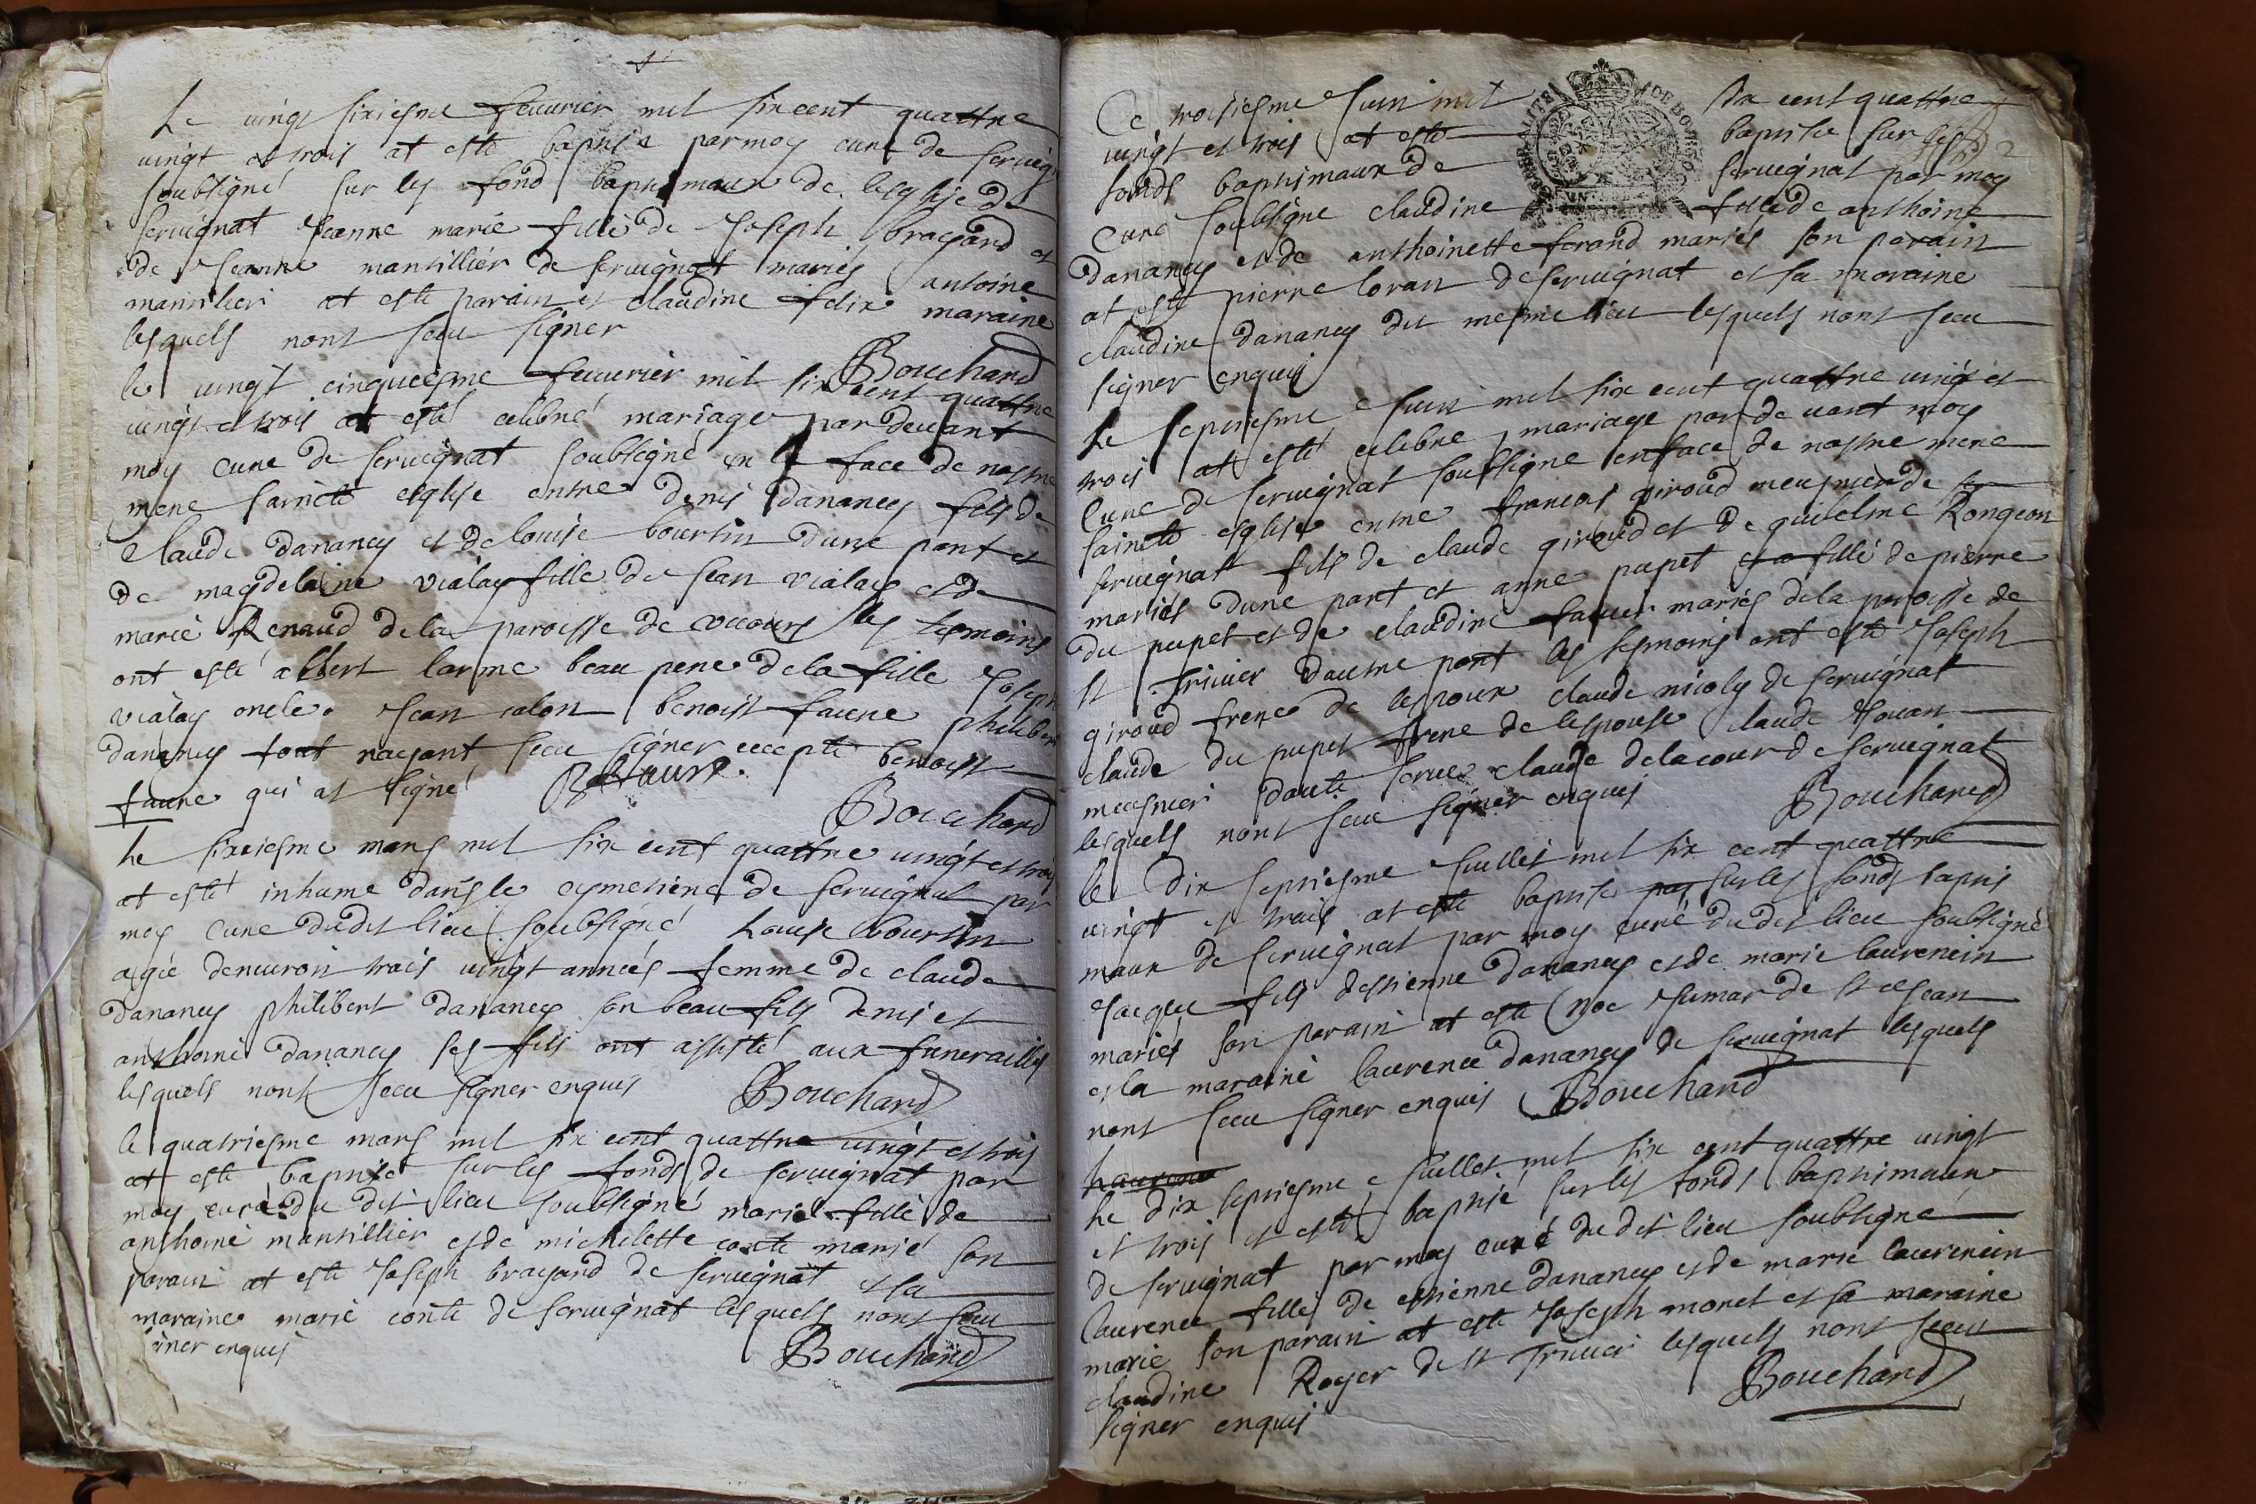 Le vingt sixiesme feuurier mil six cent quattre
vingt et trois at esté baptisé par moy curé de seruigna
soubsigné sur les fond baptismaux de lesglise de
seruignat Jeanne marie fille de Joseph brayand et
de Jeanne mantillier de seruignat mariés antoine
mantilier at esté parain et claudine felix maraine
lesquels nont sceu signer
Bouchard
le vingt cinqueiesme feuurier mil six cent quattre
vingt et trois at esté celebré mariage par deuant
moy curé de seruignat soubsigné en la face de nostre
mere saincte esglise entre denis danancy fils de
Claude danancy et de louise bourtin dune part et
de magdelaine vialay fille de Jean vialay et de
marie Renaud de la paroisse de les tesmoins
ont esté albert larme beau pere de la fille Joseph
vialay oncle Jean calon benoist faure philibert
danancy tout nayant sceu signer excepte benoist
faure qui at signé B faure
Bouchard
Le sixiesme mars mil six cent quattre vingt et trois
at esté inhumé dans le cymetiere de seruignat par
moy curé dudit lieu soubsigné Louise bourtin
agée denuiron trois vingt années femme de claude
danancy philibert danancy son beau fils denis et
anthoine danancy ses fils ont assisté aux funerailles
lesquels nont sceu signer enquis
Bouchard
le quatriesme mars mil six cent quattre vingt et trois
at esté baptisé sur les fonds de seruignat par
moy curé du dit lieu soubsigné marie fille de
anthoine mantillier et de michelette conte marié son
parain at esté Joseph brayand de seruignat et sa
maraine marie conte de seruignat lesquels nont sceu
signer enquis
Bouchard
Ce troisiesme Juin mil six cent quattre
vingt et trois at esté baptisée sur les
fonds baptimaux de seruignat par moy
Curé soubsigné claudine fille de anthoine
danancy et de anthoinette ferand mariés son parain
at esté pierre loran de seruignat et sa maraine
claudine danancy du mesme lieu lesquels nont sceu
signer enquis
Le septiesme Juin mil six cent quattre vingt et
trois at esté celebré mariage par deuant moy
Curé de seruignat soubsigné en face de nostre mere
saincte esglise entre francois giroud meusnier de
seruignat fils de claude giroud et de guilelme Rongeon
mariés dune part et anne pupet fille de pierre
du pupet et de claudine faure mariés de la paroisse de
st Triuier dautre part les tesmoins ont esté Joseph
giroud frere de lespoux claude nicoly de seruignat
claude du pupet frere de lespouse claude Jouan
meusnier claude delacour de seruignat
lesquels nont sceu signer enquis
Bouchard
le dix septiesme Juillet mil six cent quattre
vingt et trois at esté baptisé sur les fonds baptis
maux de seruignat par moy curé du dit lieu soubsigné
Jacque fils destienne danancy et de marie laurencin
mariés son parain at esté Noe Jumar de st Jean
et la maraine laurence danancy de seruignat lesquels
nont sceu signer enquis Bouchard
Laurence
Le dix septiesme Juillet mil six cent quattre vingt
et trois at esté baptisé sur les fonds baptismaux
de seruignat par moy curé du dit lieu soubsigné
laurence fille de estienne danancy et de marie laurencin
marié son parain at esté Joseph morel et sa maraine
claudine Royer de st Triuier lesquels nont sceu
signer enquis
Bouchard